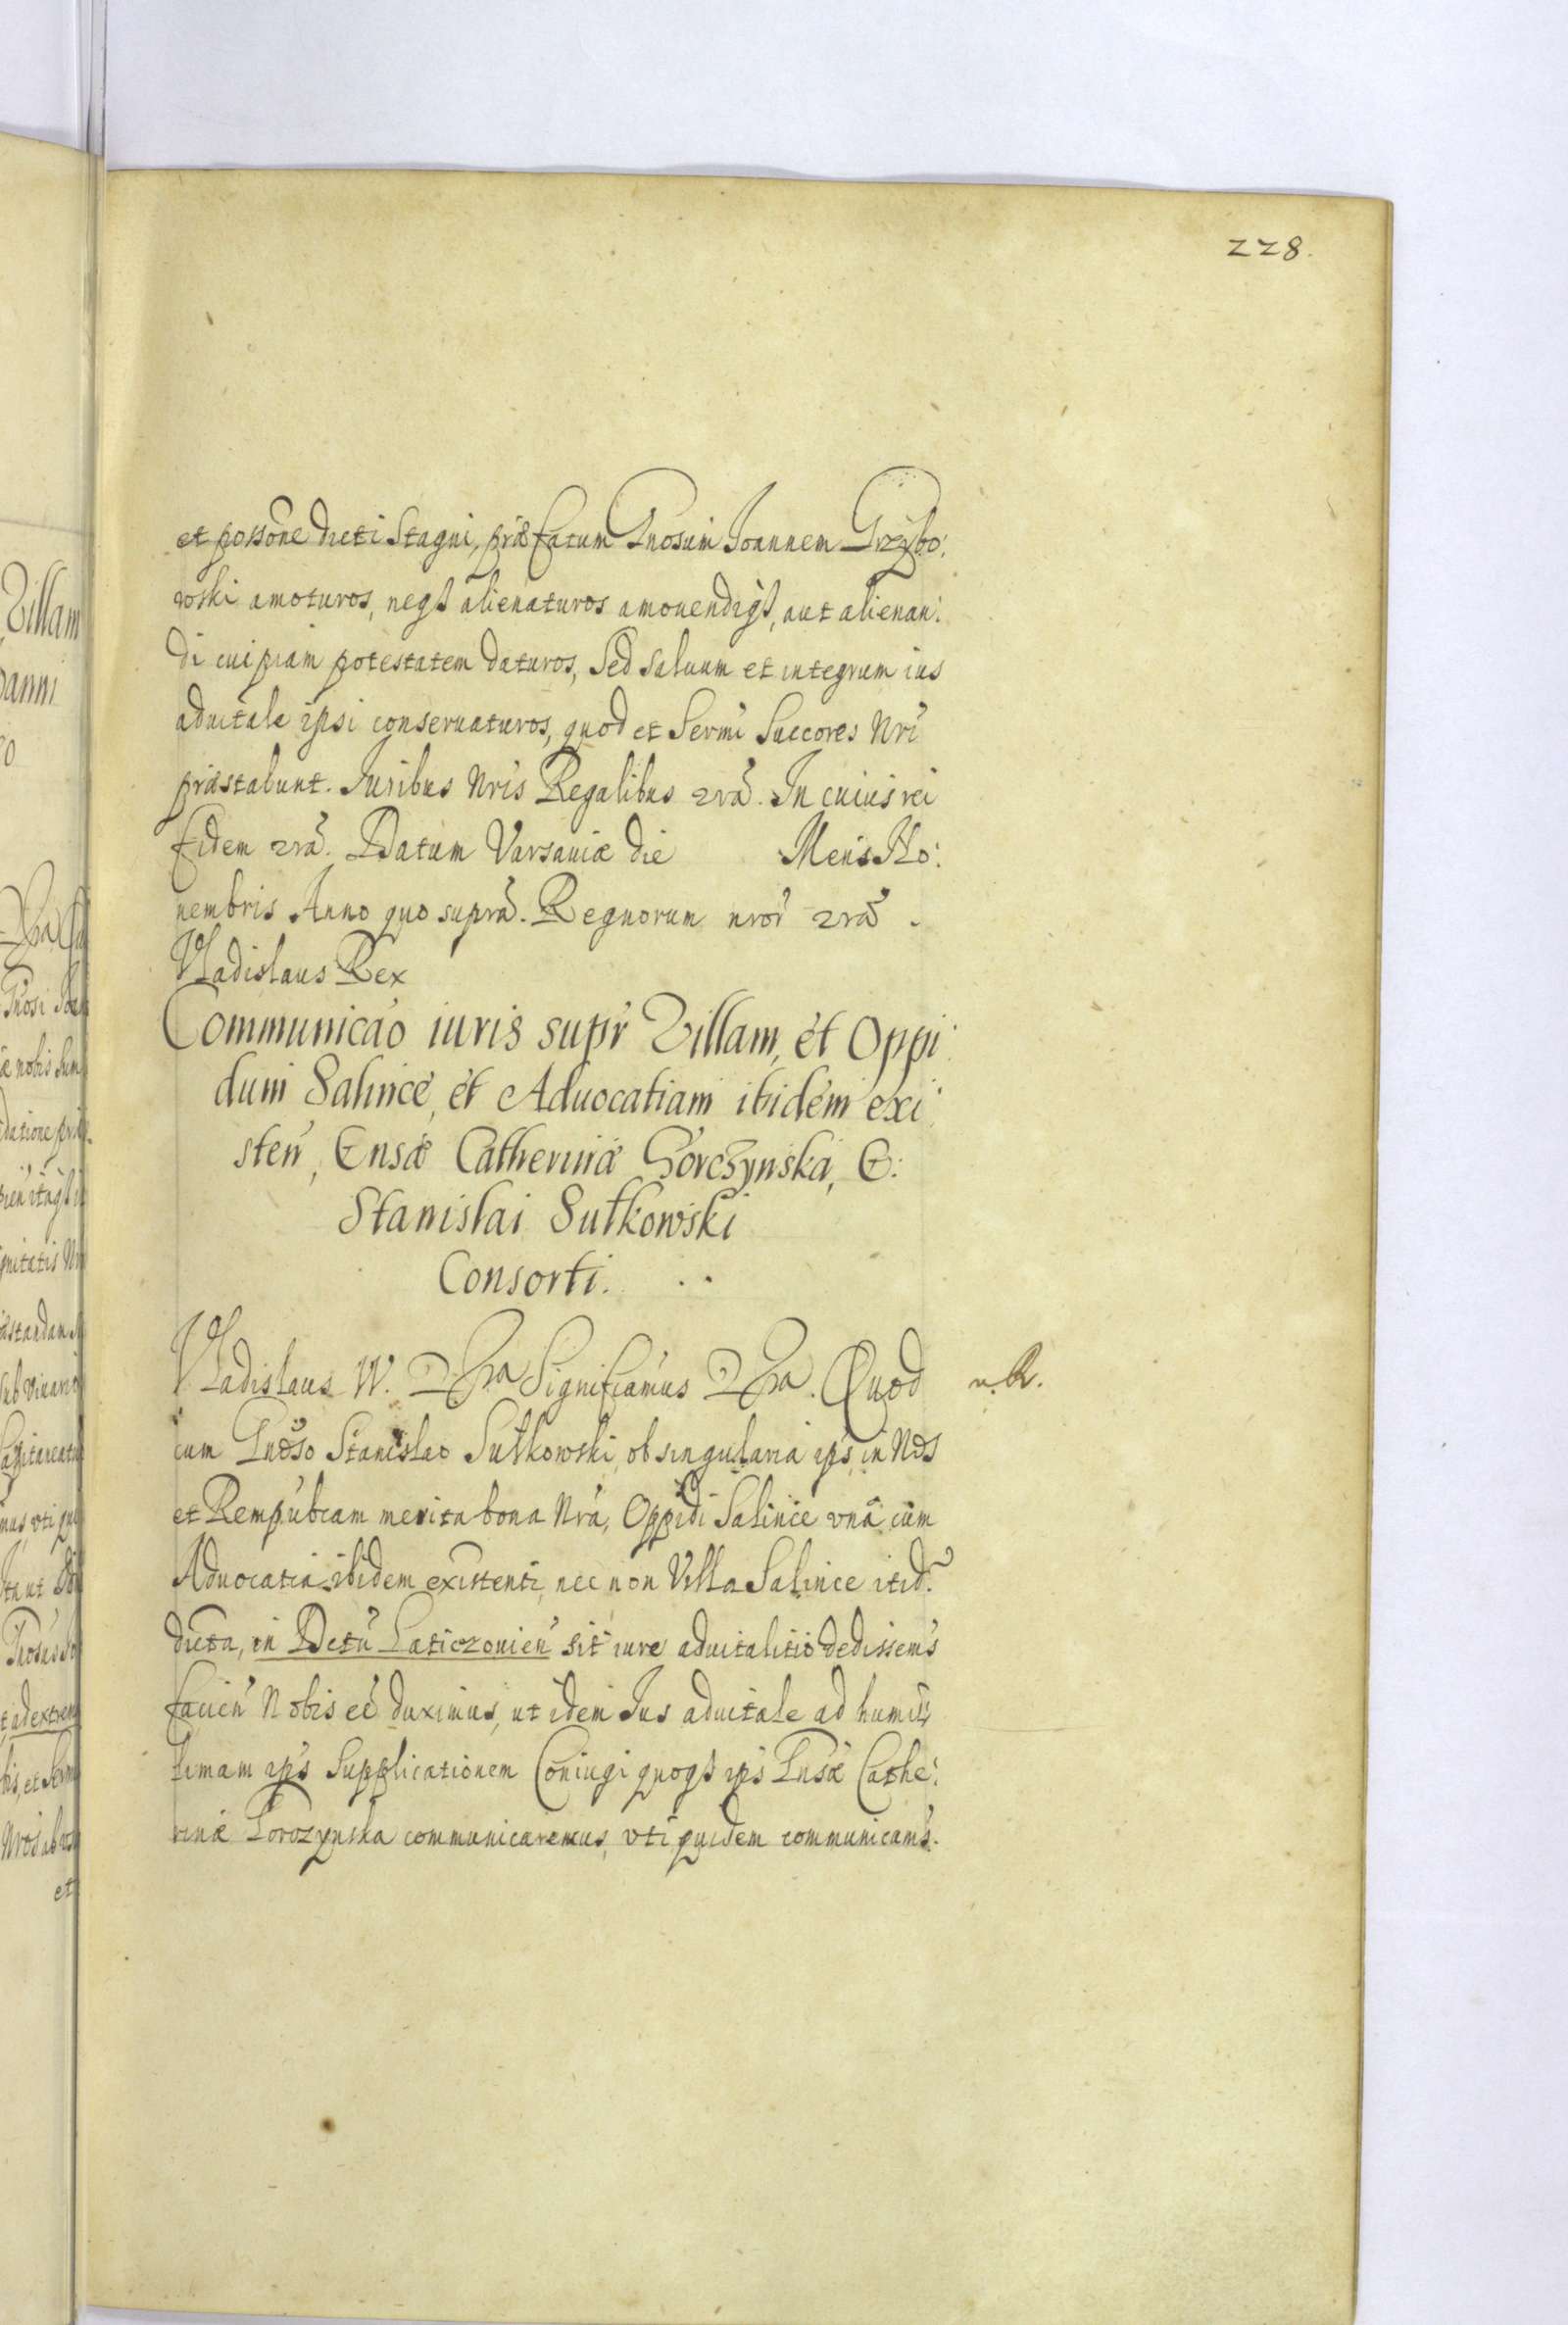 228.
et possone dicti Stagni, præfatum Gnosum Joannem Grzybo:
wski amoturos, neq3 alienaturos amouendiq3, aut alienan:
di cuipiam potestatem daturos, Sed saluum et integrum ius
aduitale ipsi conseruaturos, quod et Sermi Succores Nri
præstabunt. Iuribus Nris Regalibus 2rã. In cuius rei
fidem 2rã. Datum Varsauiæ die Mens No:
uembris Anno quo suprã. Regnorum nror 2rã.
Vladislaus Rex
Communicao iuris supr Villam, et Oppi:
dum Salince, et Aduocatiam ibidem exi:
sten, Gnsæ Catherinæ Gorczynska, G:
Stanislai Sutkowski
Consorti.
Vladislaus IV. 2ra Significamus 2ra. Quod
cum Gnoso Stanislao Sutkowski, ob singularia ips in Nos
et Rempubcam merita bona Nra, Oppidi Salince vna cum
Aduocatia ibidem existenti, nec non Villa Salince itid.
dicta, in Dctu Laticzouien sit iure aduitalitio dedissems
facien Nobis eē duximus, ut idem Ius aduitale ad humil
limam ips Supplicationem Coniugi quoq3 ips Gnsæ Cathe:
rinæ Gorczynska communicaremus, vti quidem communicams.